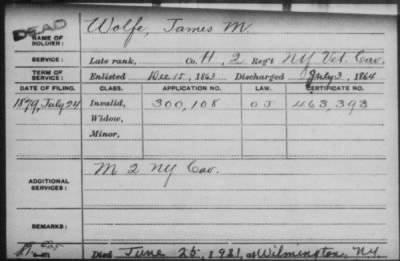 DEAD
NAME OF SOLDIER: Wolfe, James M.
SERVICE: Late rank, Co. H, 2 Reg't NY Vet. Cav.
TERM OF SERVICE: Enlisted Dec 15, 1863 Discharged July 3, 1864
DATE OF FILING. CLASS. APPLICATION NO. LAW. CERTIFICATE NO.
1879, July 24 Invalid, 300,108 463,393
Widow,
Minor,
ADDITIONAL SERVICES: M 2 NY Cav.
REMARKS:
Died June 25, 1921, at Wilmington, NY.